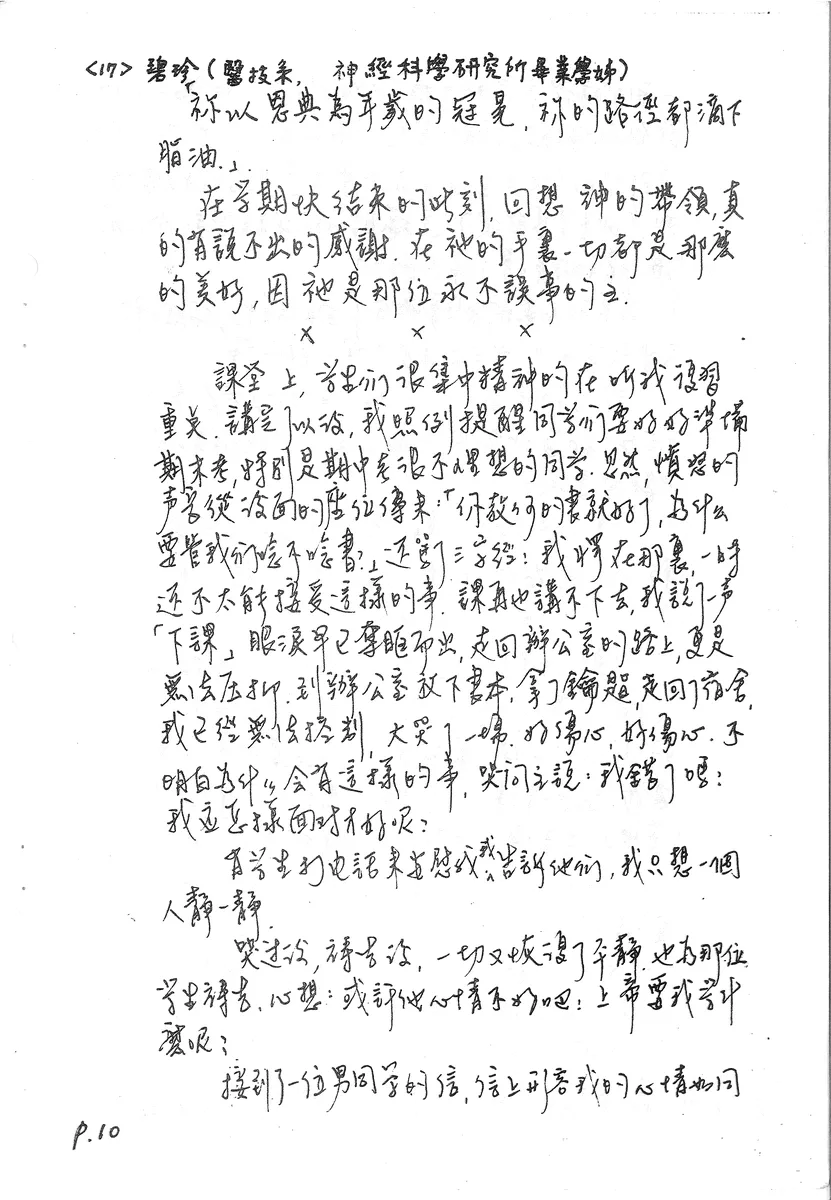 <17> 碧珍(醫技系, 神經科學研究所畢業學姊)
「祢以恩典為年歲的冠冕,祢的路徑都滴下
脂油.」.
在学期快結束的此刻,回想 神的帶領,真
的有說不出的感謝.在祂的手裏一切都是那麼
的美好,因祂是那位永不誤事的主.
× × ×
課堂上,学生们很集中精神的在听我複習
重点.講完了以後,我照例提醒同学们要好好準備
期末考,特別是期中考很不理想的同学.忽然,憤怒的
声音從後面的座位傳来:「你教你的書就好了,為什么
要管我们唸不唸書?」还罵了三字经:我愕在那裏,一時
还不太能接受這樣的事.課再也講不下去,我說了一声
「下課」眼淚早已奪眶而出,走回辦公室的路上,更是
無法压抑.到辦公室放下書本,拿了鑰匙,走回了宿舍,
我已经無法控制,大哭了一場.好傷心,好傷心.不
明白為什么会有這樣的事,哭问主說:我錯了嗎?
我应怎樣面对才好呢?
有学生打电話来安慰我,我告訴他们,我只想一個
人靜一靜.
哭过後,禱告後,一切又恢復了平靜.也為那位
学生禱告.心想:或許他心情不好吧;上帝要我学什
麼呢?
接到了一位男同学的信,信上形容我的心情如同
P.10